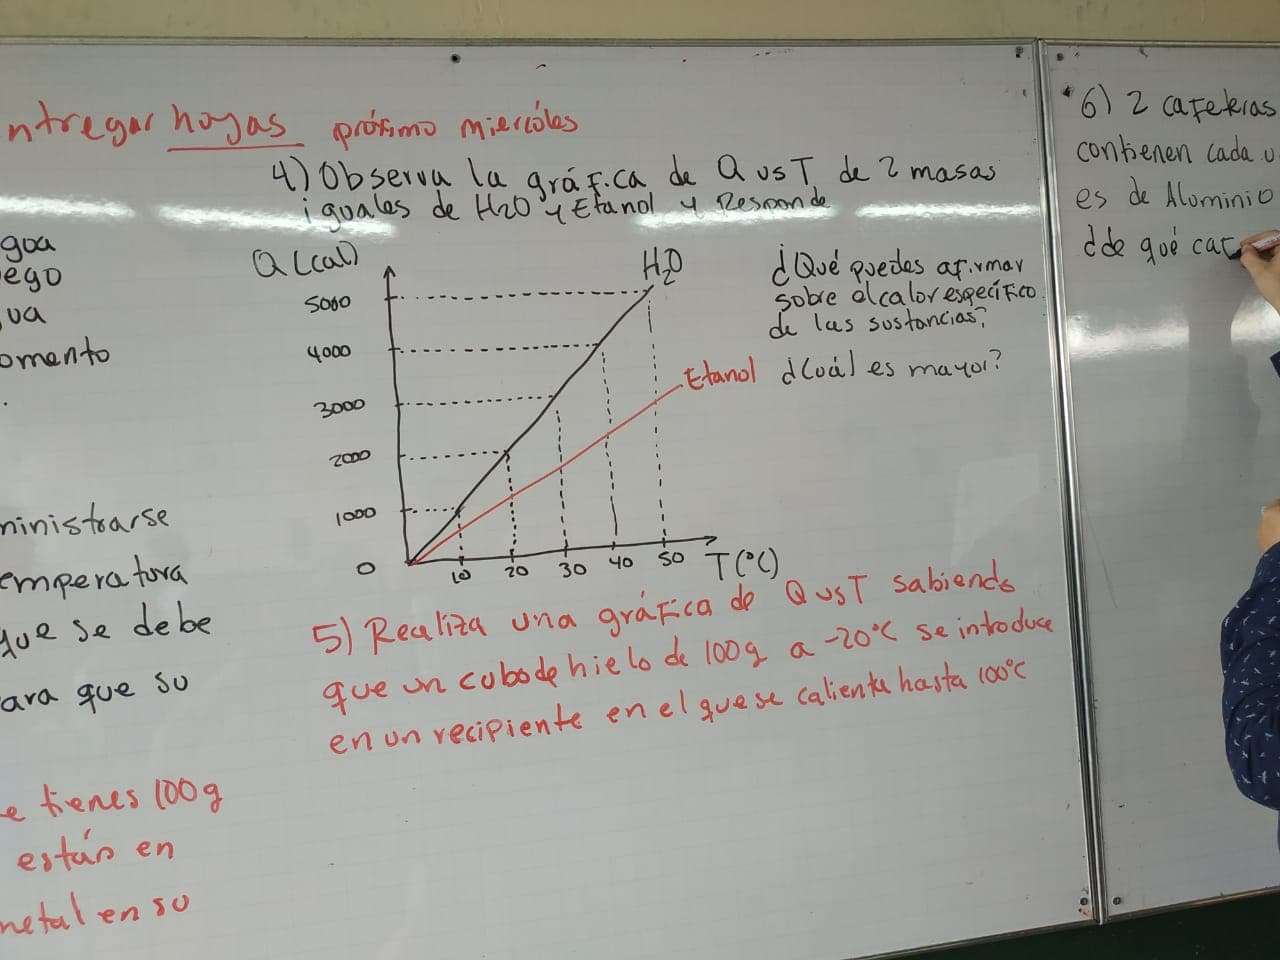 ntregar hoyas próximo miercóles
4) Observa la gráfica de Q vs T de 2 masas
iguales de H2O y Etanol y Responde
goa
ego
ua
omento
.
Q (cal)
5000
4000
3000
2000
1000
0
H2O
Etanol
10 20 30 40 50 T(°C)
¿Qué puedes afirmar
sobre el calor específico
de las sustancias?
¿Cuál es mayor?
ministrarse
emperatura
que se debe
ara que su
e tienes 100g
están en
metal en su
5) Realiza una gráfica de Q vs T sabiendo
que un cubo de hielo de 100g a -20°C se introduce
en un recipiente en el que se calienta hasta 100°C
6) 2 cafeteras
contienen cada u
es de Aluminio
¿de qué car